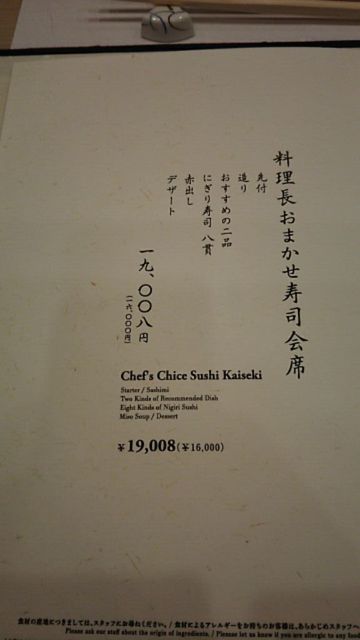 料理長おまかせ寿司会席
先付
造り
おすすめの二品
にぎり寿司 八貫
赤出し
デザート
一九、〇〇八円
(一六、〇〇〇円)
Chef's Chice Sushi Kaiseki
Starter / Sashimi
Two Kinds of Recommended Dish
Eight Kinds of Nigiri Sushi
Miso Soup / Dessert
¥19,008(¥16,000)
食材の産地につきましては、スタッフにお尋ねください。/ 食材によるアレルギーをお持ちのお客様は、あらかじめスタッフへ
Please ask our staff about the origin of ingredients. / Please let us know if you are allergic to any foo